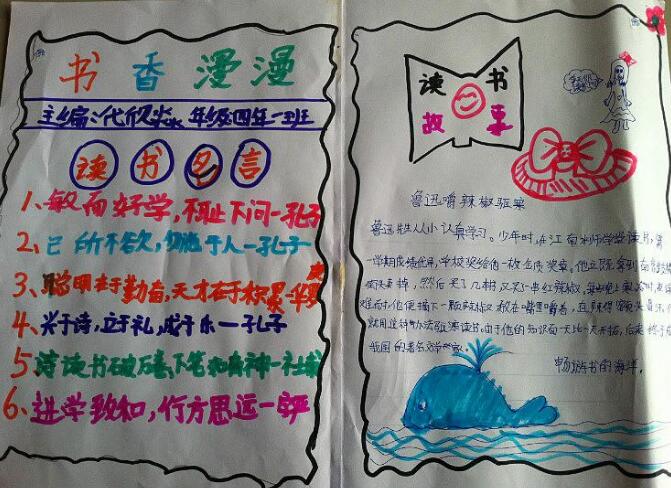 书香漫漫
主编:代欣 年级:四年一班
读书名言
1、敏而好学,不耻下问一孔子
2、己所不欲,勿施于人一孔子
3、聪明在于勤奋,天才在于积累一华
4、兴于诗,立于礼,成于乐一孔子
5 读书破万卷,下笔如有神一杜甫
6、进学致和,行方思远一
读书
故事
鲁迅嚼辣椒驱寒
鲁迅先生从小认真学习。少年时,在江南水师学堂读书,第
一学期成绩优异,学校奖给他一枚金质奖章。他立即拿到南京鼓楼
街头卖掉,然后买了几本书,又买一串红辣椒。每当晚上寒冷时,夜读
难耐,他便摘下一颗辣椒,放在嘴里嚼着,直辣得额头冒汗。他
就用这种办法驱寒读书。由于他的知识面一天比一天开拓,后来终于成
我国的著名文学家。
畅游书的海洋。